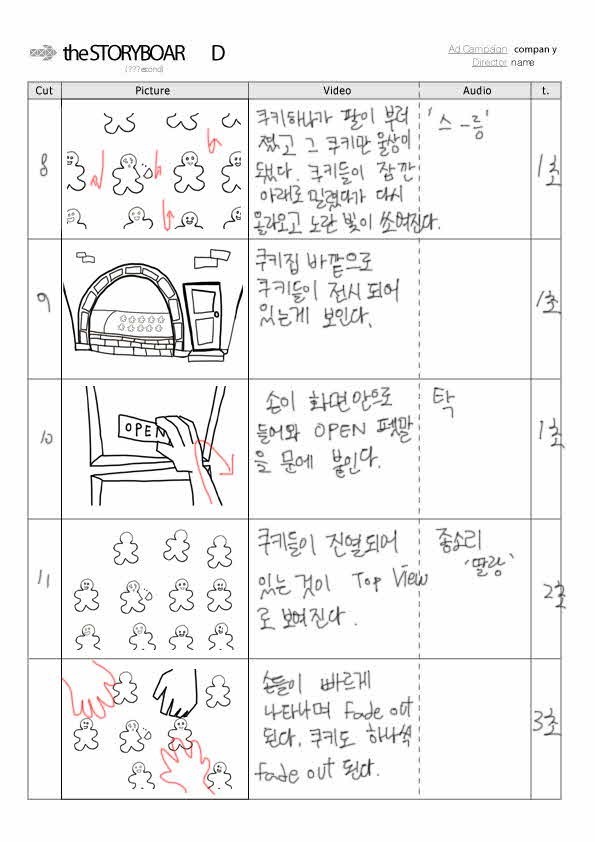 the STORYBOAR D
(???econd)
Ad Campaign company
Director name
Cut Picture Video Audio t.
8
쿠키하나가 팔이 부러
졌고 그 쿠키만 울상이
되었다. 쿠키들이 잠깐
아래로 밀렸다가 다시
올라오고 노란 빛이 쏘여진다.
'스-릉'
1초
9
쿠키집 바깥으로
쿠키들이 전시되어
있는게 보인다.
1초
10
OPEN
손이 화면안으로
들어와 OPEN 팻말
을 문에 붙인다.
탁
1초
11
쿠키들이 진열되어
있는 것이 Top View
로 보여진다.
종소리
'딸랑'
2초
손들이 빠르게
나타나며 Fade out
된다. 쿠키도 하나씩
Fade out 된다.
3초